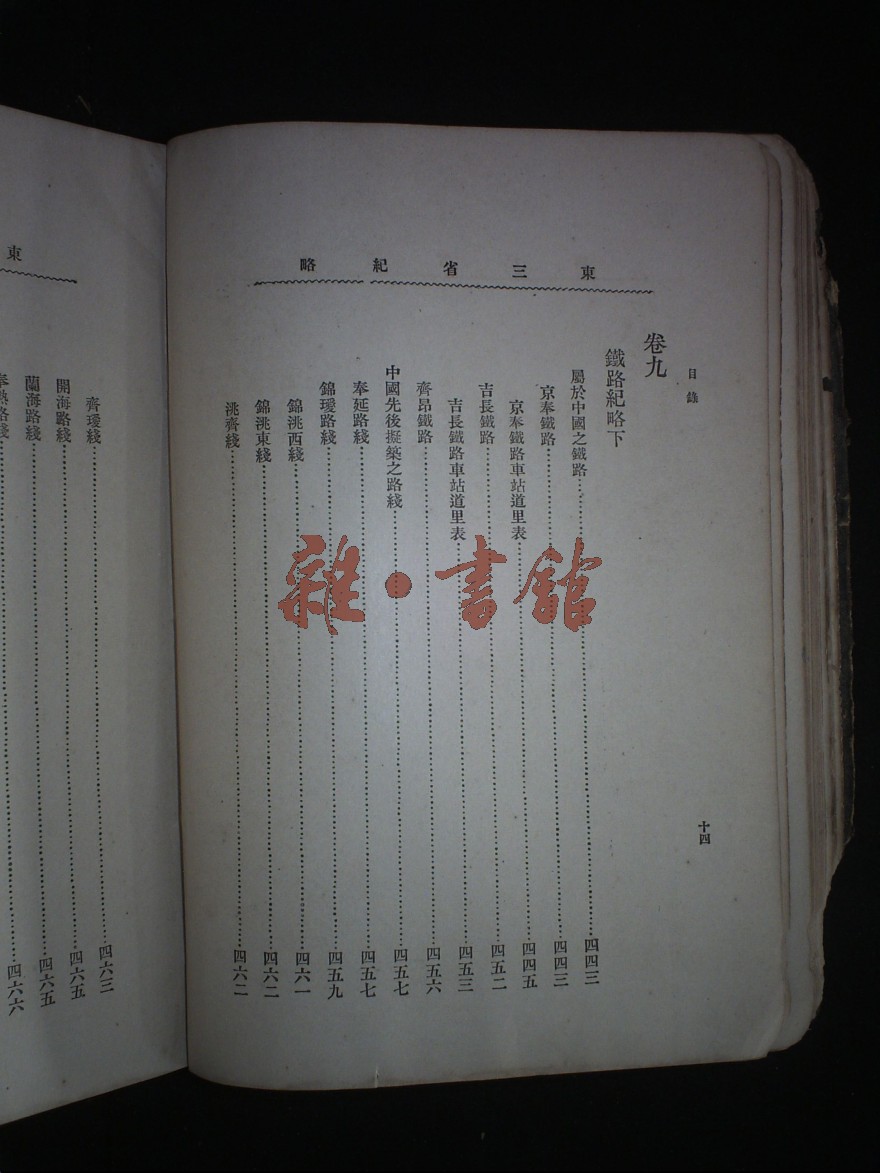 東三省紀略
目錄
十四
卷九
鐵路紀略下
屬於中國之鐵路……四四三
京奉鐵路……四四三
京奉鐵路車站道里表……四四五
吉長鐵路……四五二
吉長鐵路車站道里表……四五三
齊昂鐵路……四五六
中國先後擬築之路綫……四五七
奉延路綫……四五七
錦璦路綫……四五九
錦洮西綫……四六一
錦洮東綫……四六二
洮齊綫……四六二
東
齊璦綫……四六三
開海路綫……四六五
蘭海路綫……四六五
奉熱路綫……四六六
雜·書館